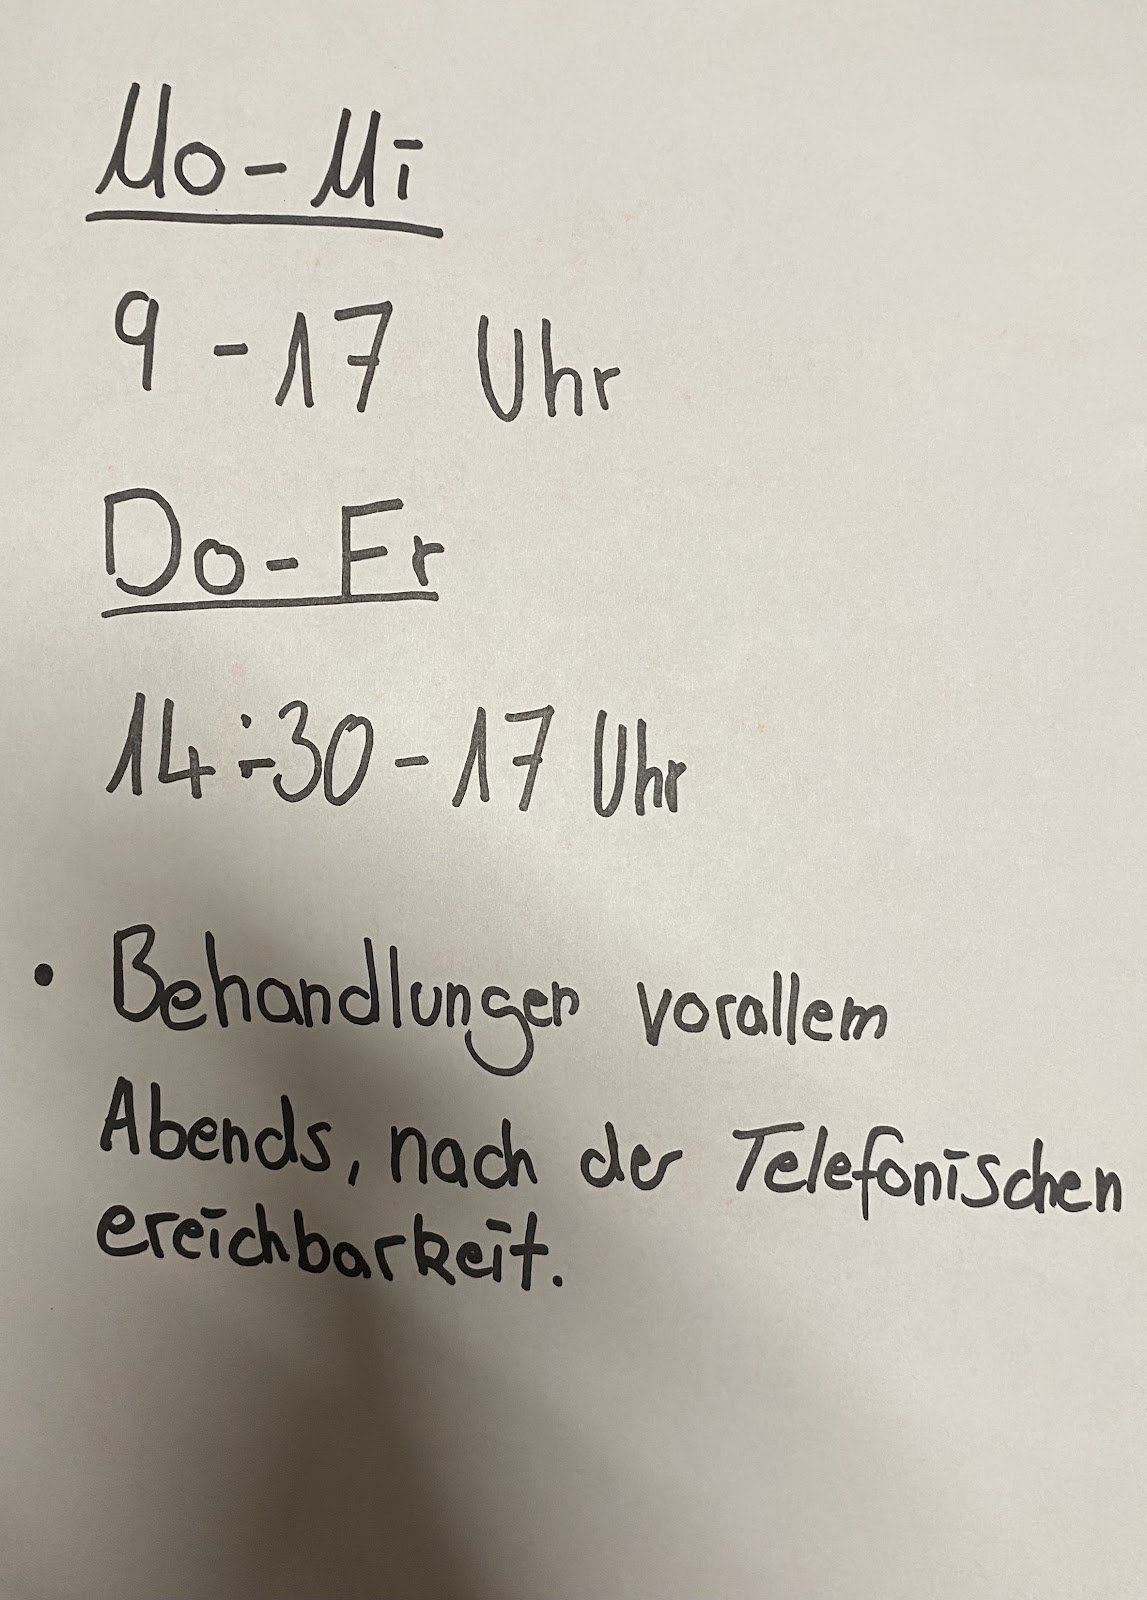 Mo-Mi
9-17 Uhr
Do-Fr
14:30-17 Uhr
• Behandlungen vorallem
Abends, nach der Telefonischen
ereichbarkeit.